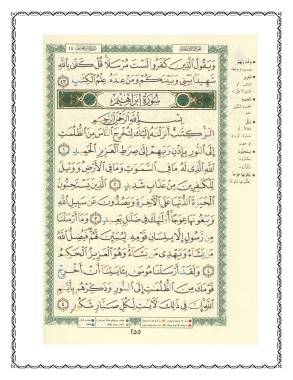 وَيَقُولُ الَّذِينَ كَفَرُوا لَسْتَ مُرْسَلًا قُلْ كَفَىٰ بِاللَّهِ
شَهِيدًا بَيْنِي وَبَيْنَكُمْ وَمَنْ عِندَهُ عِلْمُ الْكِتَابِ ٤٣
سُورَةُ إِبْرَاهِيمَ
بِسْمِ اللَّهِ الرَّحْمَٰنِ الرَّحِيمِ
الر كِتَابٌ أَنزَلْنَاهُ إِلَيْكَ لِتُخْرِجَ النَّاسَ مِنَ الظُّلُمَاتِ
إِلَى النُّورِ بِإِذْنِ رَبِّهِمْ إِلَىٰ صِرَاطِ الْعَزِيزِ الْحَمِيدِ ١
اللَّهِ الَّذِي لَهُ مَا فِي السَّمَاوَاتِ وَمَا فِي الْأَرْضِ وَوَيْلٌ
لِّلْكَافِرِينَ مِنْ عَذَابٍ شَدِيدٍ ٢ الَّذِينَ يَسْتَحِبُّونَ
الْحَيَاةَ الدُّنْيَا عَلَى الْآخِرَةِ وَيَصُدُّونَ عَن سَبِيلِ اللَّهِ
وَيَبْغُونَهَا عِوَجًا أُولَٰئِكَ فِي ضَلَالٍ بَعِيدٍ ٣ وَمَا أَرْسَلْنَا
مِن رَّسُولٍ إِلَّا بِلِسَانِ قَوْمِهِ لِيُبَيِّنَ لَهُمْ فَيُضِلُّ اللَّهُ
مَن يَشَاءُ وَيَهْدِي مَن يَشَاءُ وَهُوَ الْعَزِيزُ الْحَكِيمُ
٤ وَلَقَدْ أَرْسَلْنَا مُوسَىٰ بِآيَاتِنَا أَنْ أَخْرِجْ
قَوْمَكَ مِنَ الظُّلُمَاتِ إِلَى النُّورِ وَذَكِّرْهُم بِأَيَّامِ
اللَّهِ إِنَّ فِي ذَٰلِكَ لَآيَاتٍ لِّكُلِّ صَبَّارٍ شَكُورٍ ٥
٢٥٥